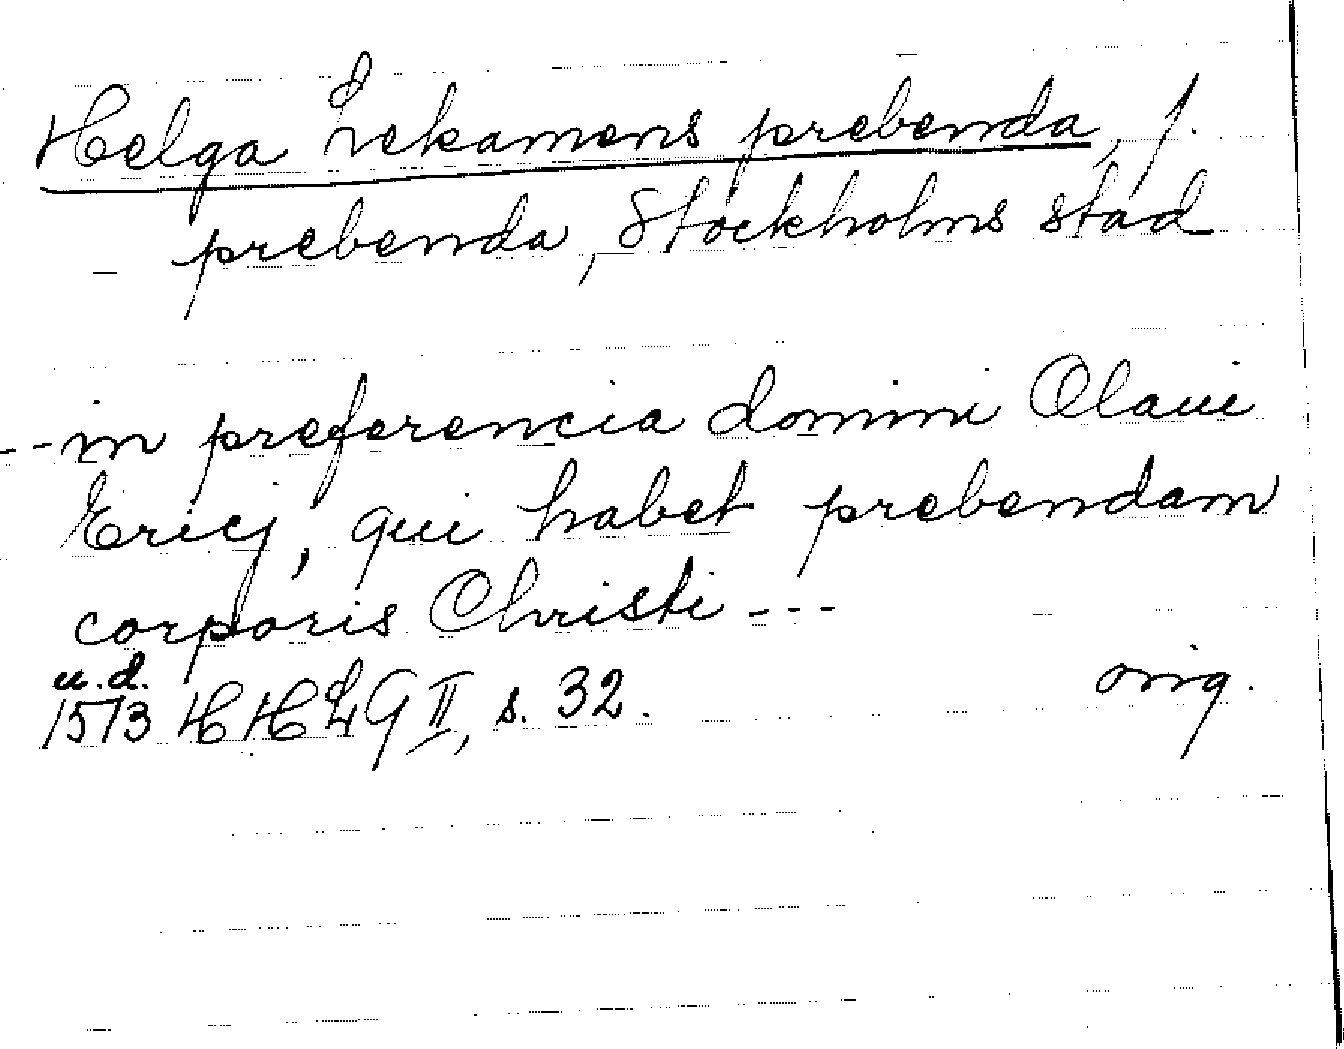 Helga Lekamens prebenda, f.
prebenda, Stockholms stad
--in preferencia domini Olaui
Ericj, qui habet prebendam
corporis Christi ---
u.d.
1513 HHLG II, s. 32. orig.